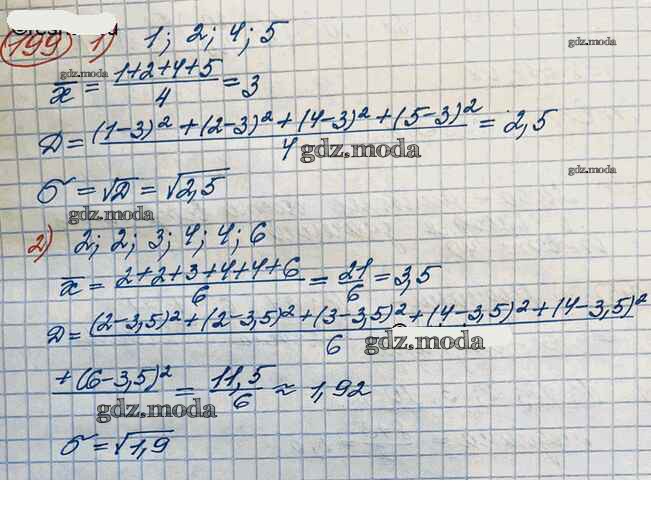 199 1) 1; 2; 4; 5
gdz.moda gdz.moda
x̄ = (1+2+4+5)/4 = 3
D = ((1-3)² + (2-3)² + (4-3)² + (5-3)²)/4 = 2,5
gdz.moda gdz.moda
σ = √D = √2,5
gdz.moda
2) 2; 2; 3; 4; 4; 6
x̄ = (2+2+3+4+4+6)/6 = 21/6 = 3,5
D = ((2-3,5)² + (2-3,5)² + (3-3,5)² + (4-3,5)² + (4-3,5)²
6 gdz.moda
+ (6-3,5)² = 11,5/6 ≈ 1,92
gdz.moda
σ = √1,9